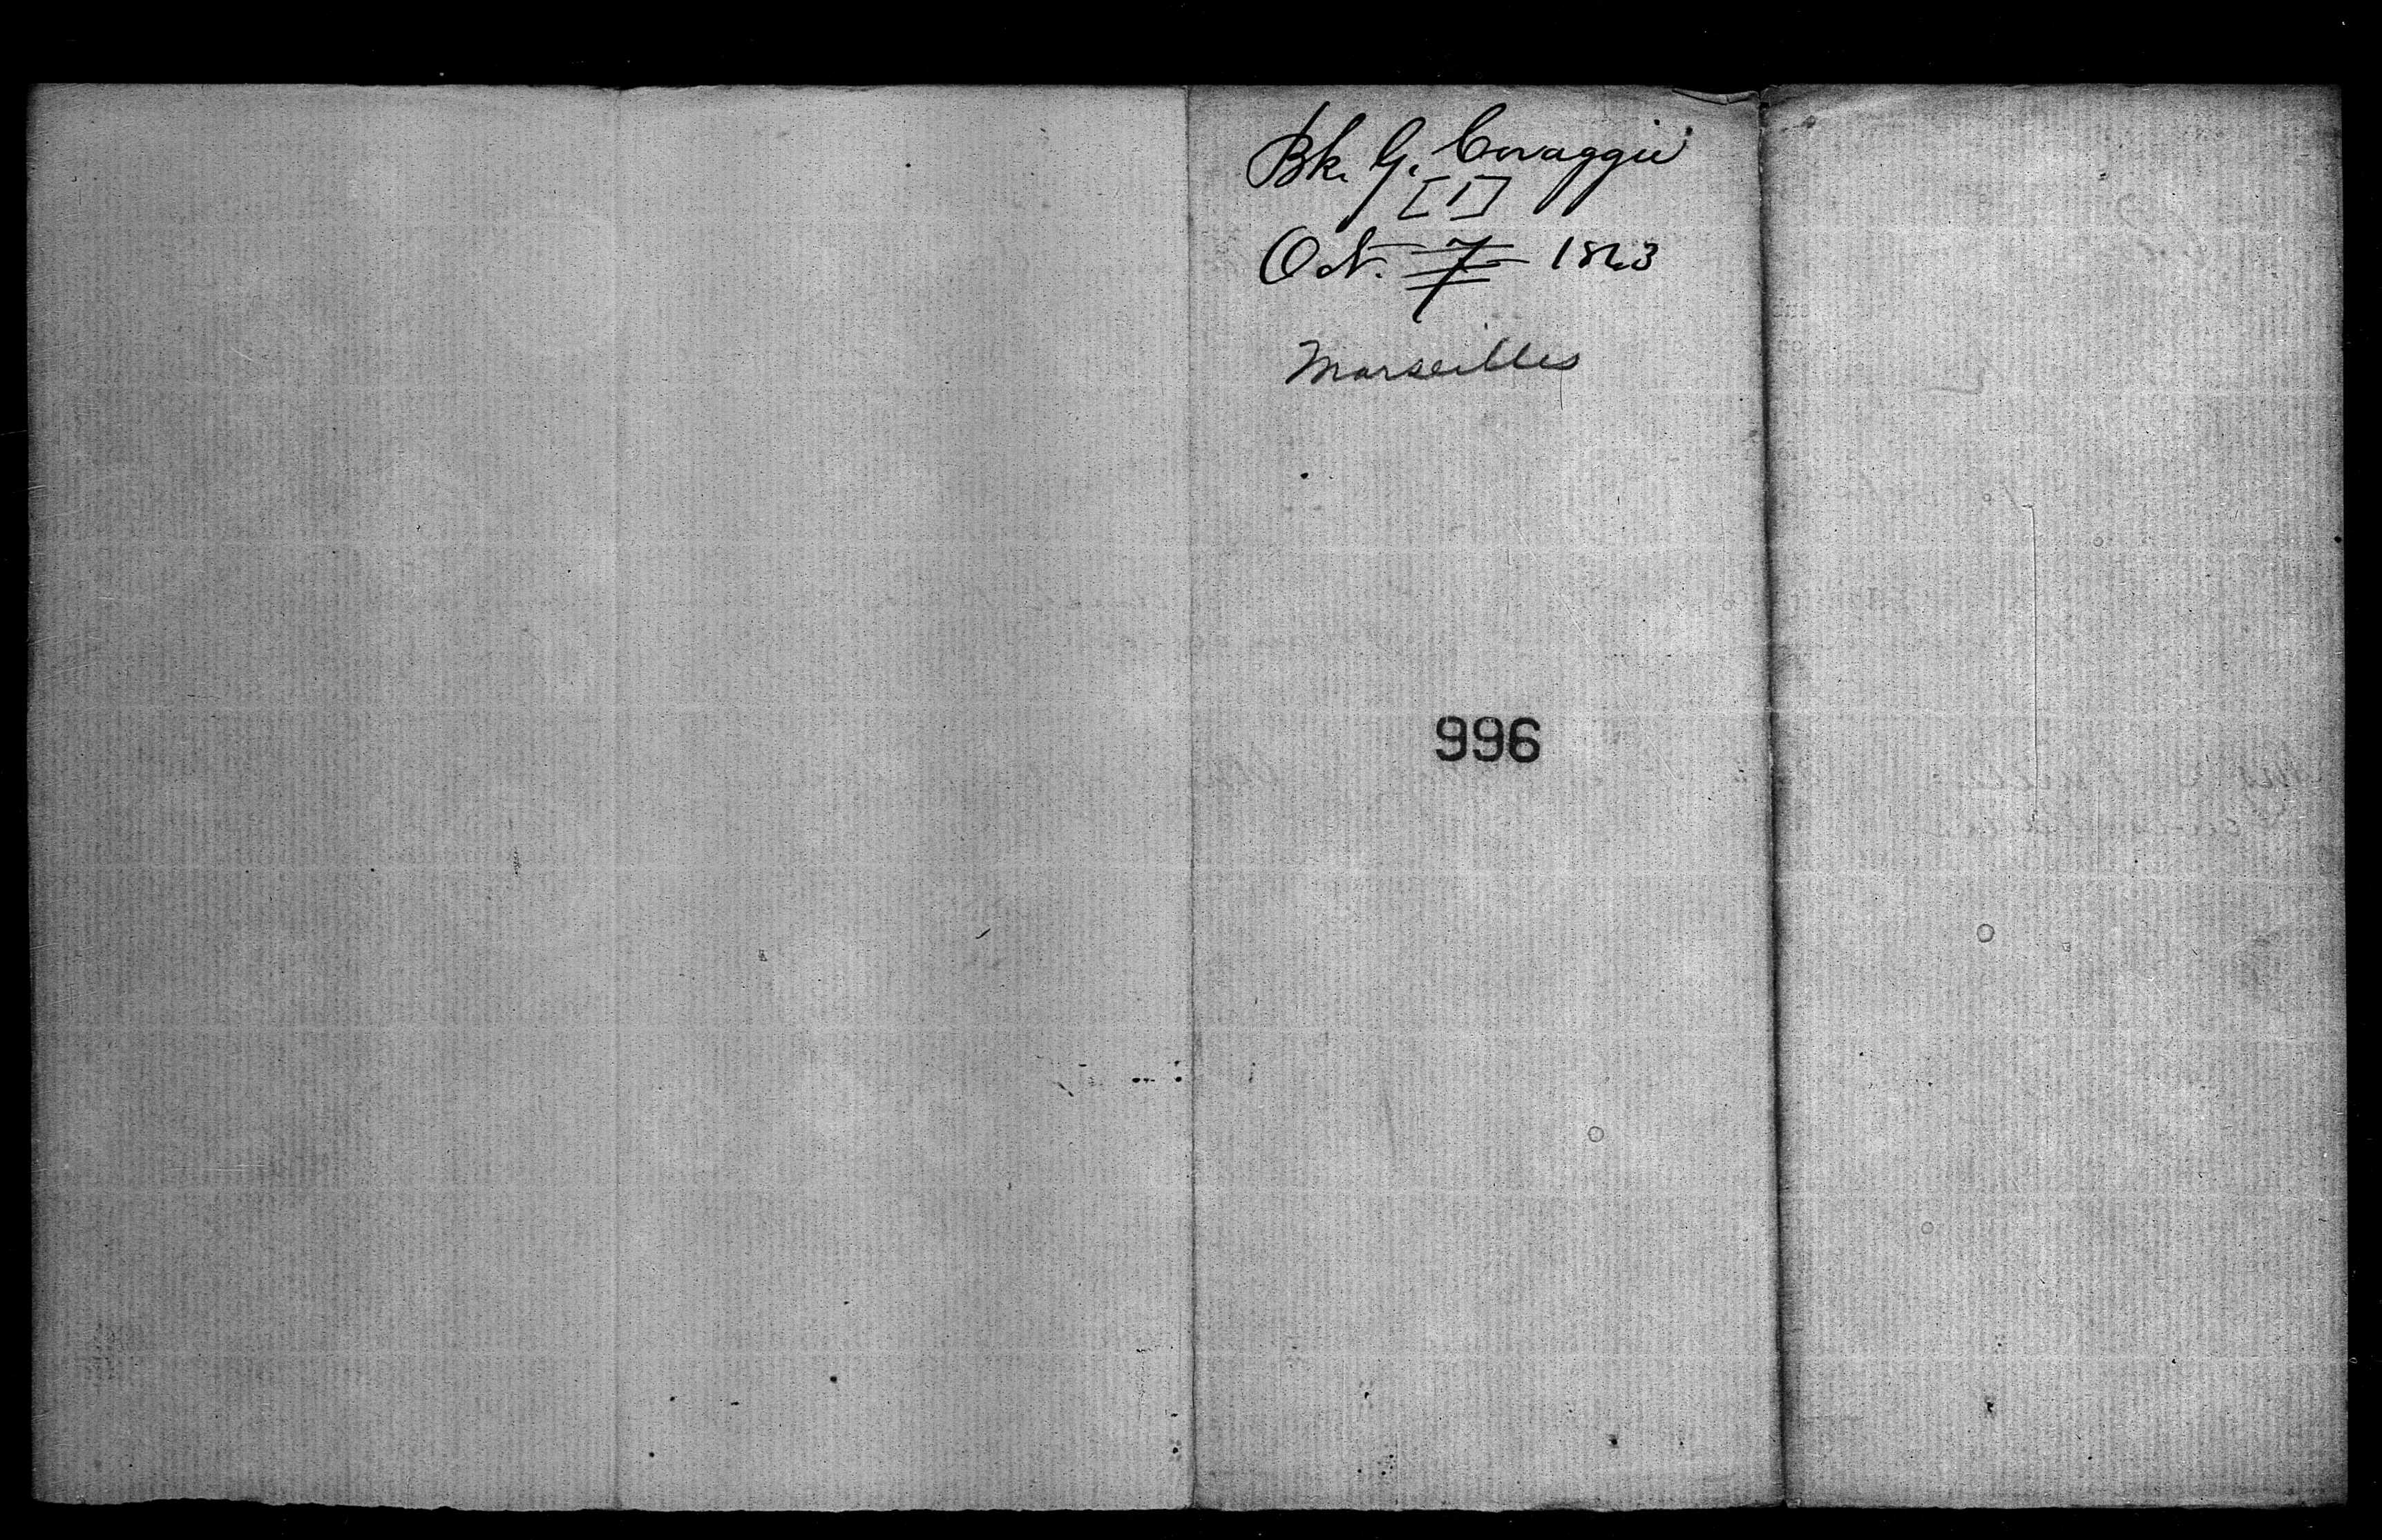 Bk. G. Coraggio
[1]
Oct. 7 1843
Marseilles
996